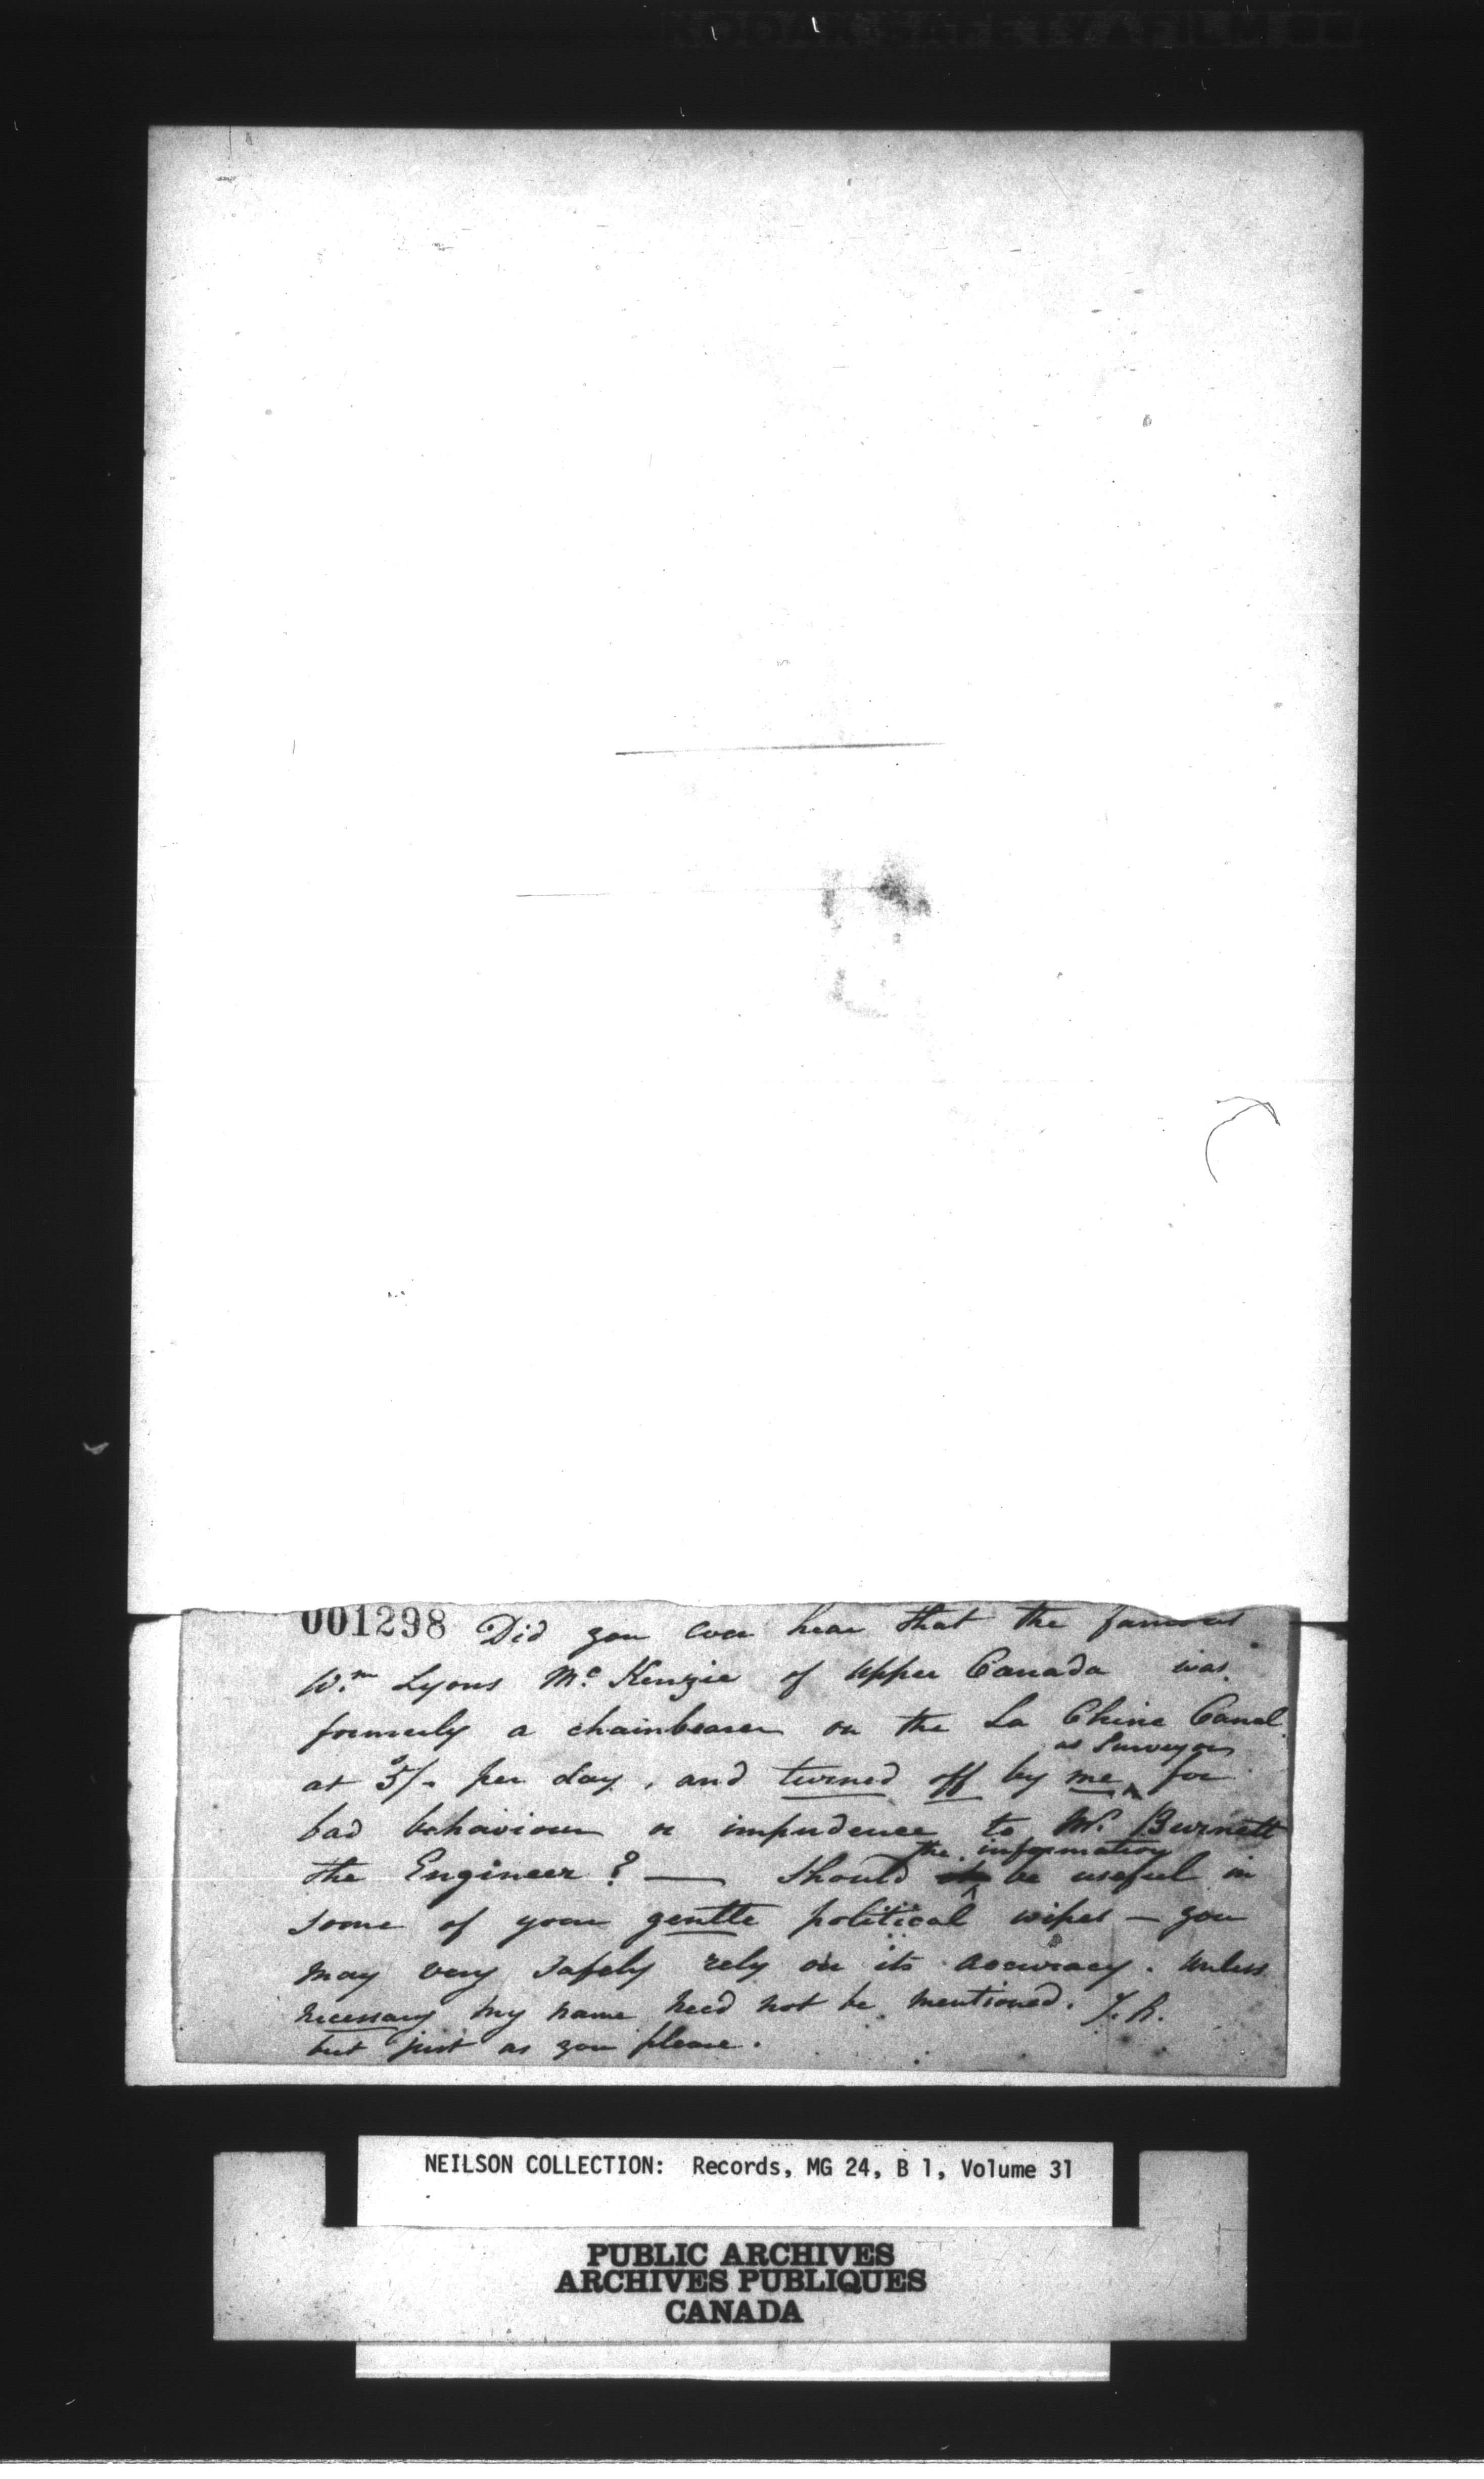 KODAK SAFETY FILM
001298 Did you ever hear that the famous
Wm. Lyons Mc.Kenzie of Upper Canada was
formerly a chainbearer on the La Chine Canal
as Surveyor
at 5/- per day, and turned off by me, for
bad behaviour or impudence to Mr. Burnett
the Engineer? — Should the information be useful in
some of your gentle political wipes — you
may very safely rely on its accuracy. Unless
necessary my name need not be mentioned. J.R.
but just as you please.
NEILSON COLLECTION: Records, MG 24, B 1, Volume 31
PUBLIC ARCHIVES
ARCHIVES PUBLIQUES
CANADA